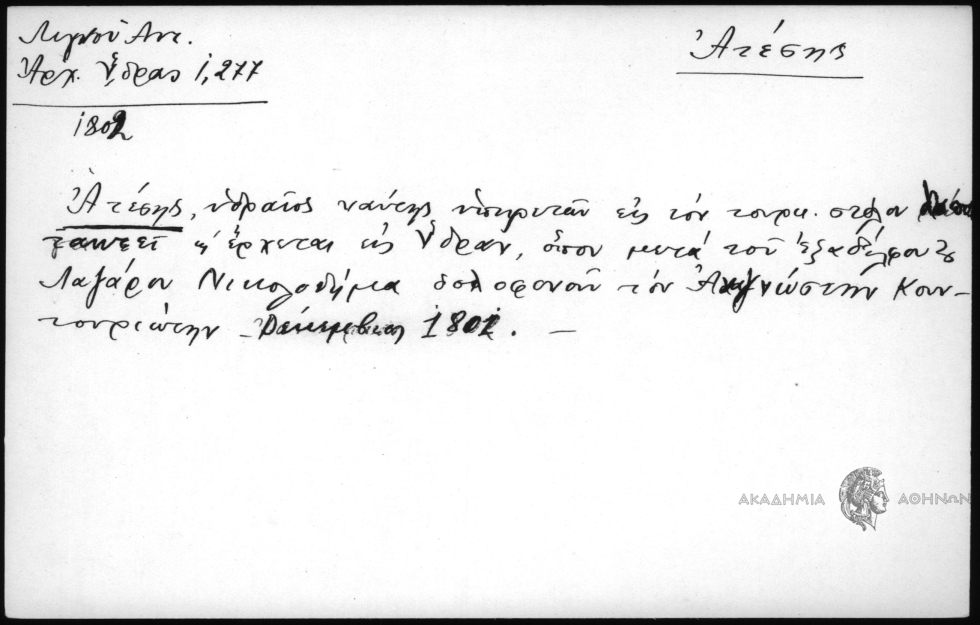 Λιγνοῦ Αντ.
Ἀρχ. Ὕδρας Ι, 277
1802
Ἀτέσης
Ἀτέσης, ὑδραῖος ναύτης ὑπηρετῶν εἰς τὸν τουρκ. στόλον
ἔρχεται εἰς Ὕδραν, ὅπου μετὰ τοῦ ἐξαδέλφου του
Λαζάρου Νικολοδήμα δολοφονοῦν τὸν Ἀναγνώστην Κουν-
τουριώτην Δεκέμβριος 1801. —
ΑΚΑΔΗΜΙΑ ΑΘΗΝΩΝ